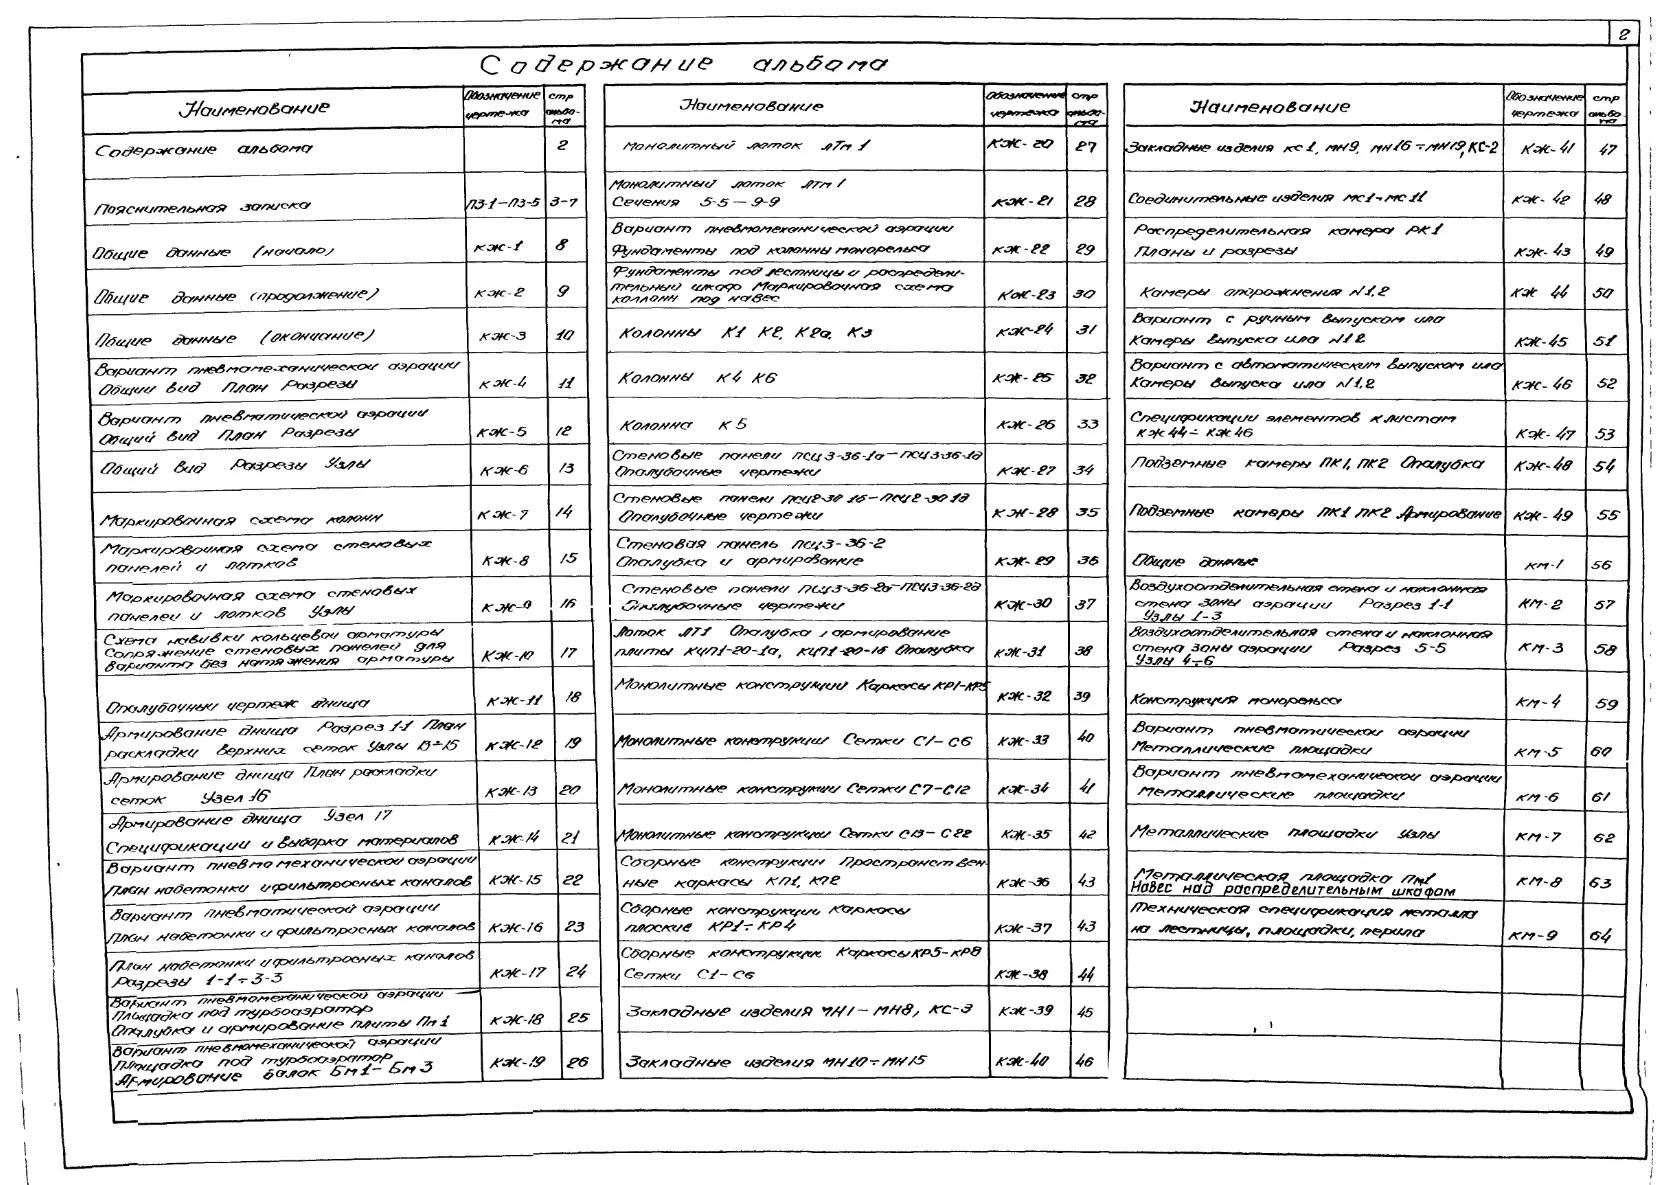 2
Содержание альбома
Наименование
Обозначение чертежа
стр альбома
Содержание альбома 2
Пояснительная записка ПЗ-1–ПЗ-5 3-7
Общие данные (начало) КЖ-1 8
Общие данные (продолжение) КЖ-2 9
Общие данные (окончание) КЖ-3 10
Вариант пневмомеханической аэрации
Общий вид План Разрезы КЖ-4 11
Вариант пневматической аэрации
Общий вид План Разрезы КЖ-5 12
Общий вид Разрезы Узлы КЖ-6 13
Маркировочная схема колонн КЖ-7 14
Маркировочная схема стеновых
панелей и лотков КЖ-8 15
Маркировочная схема стеновых
панелей и лотков Узлы КЖ-9 16
Схема навивки кольцевой арматуры
Сопряжение стеновых панелей для
варианта без натяжения арматуры КЖ-10 17
Опалубочный чертеж днища КЖ-11 18
Армирование днища Разрез 1-1 План
раскладки верхних сеток Узлы 13÷15 КЖ-12 19
Армирование днища План раскладки
сеток Узел 16 КЖ-13 20
Армирование днища Узел 17
Спецификации и выборка материалов КЖ-14 21
Вариант пневмомеханической аэрации
План набетонки и фильтросных каналов КЖ-15 22
Вариант пневматической аэрации
План набетонки и фильтросных каналов КЖ-16 23
План набетонки и фильтросных каналов
Разрезы 1-1÷3-3 КЖ-17 24
Вариант пневмомеханической аэрации
Площадка под турбоаэратор
Опалубка и армирование плиты Пм1 КЖ-18 25
Вариант пневмомеханической аэрации
Площадка под турбоаэратор
Армирование балок Бм1–Бм3 КЖ-19 26
Наименование
Обозначение чертежа
стр альбома
Монолитный лоток ЛТм 1 КЖ-20 27
Монолитный лоток ЛТм 1
Сечения 5-5 — 9-9 КЖ-21 28
Вариант пневмомеханической аэрации
Фундаменты под колонны монорельса КЖ-22 29
Фундаменты под лестницы и распредели-
тельный шкаф Маркировочная схема
колонн под навес КЖ-23 30
Колонны К1 К2, К2а, К3 КЖ-24 31
Колонны К4 К6 КЖ-25 32
Колонна К5 КЖ-26 33
Стеновые панели ПСЦ3-36-1а–ПСЦ3-36-1д
Опалубочные чертежи КЖ-27 34
Стеновые панели ПСЦ2-30 1б–ПСЦ2-30 1д
Опалубочные чертежи КЖ-28 35
Стеновая панель ПСЦ3-36-2
Опалубка и армирование КЖ-29 36
Стеновые панели ПСЦ3-36-2а–ПСЦ3-36-2д
Опалубочные чертежи КЖ-30 37
Лоток ЛТ1 Опалубка, армирование
плиты КЦП1-20-1а, КЦП1-20-1б Опалубка КЖ-31 38
Монолитные конструкции Каркасы КР1–КР5 КЖ-32 39
Монолитные конструкции Сетки С1–С6 КЖ-33 40
Монолитные конструкции Сетки С7–С12 КЖ-34 41
Монолитные конструкции Сетки С13–С22 КЖ-35 42
Сборные конструкции Пространствен-
ные каркасы КП1, КП2 КЖ-36 43
Сборные конструкции Каркасы
плоские КР1÷КР4 КЖ-37 43
Сборные конструкции Каркасы КР5-КР8
Сетки С1–С6 КЖ-38 44
Закладные изделия МН1–МН8, КС-3 КЖ-39 45
Закладные изделия МН10÷МН15 КЖ-40 46
Наименование
Обозначение чертежа
стр альбома
Закладные изделия КС1, МН9, МН16÷МН19, КС-2 КЖ-41 47
Соединительные изделия МС1÷МС11 КЖ-42 48
Распределительная камера РК1
Планы и разрезы КЖ-43 49
Камеры опорожнения №1,2 КЖ 44 50
Вариант с ручным выпуском ила
Камеры выпуска ила №1 2 КЖ-45 51
Вариант с автоматическим выпуском ила
Камеры выпуска ила №1,2 КЖ-46 52
Спецификации элементов к листам
КЖ44÷КЖ46 КЖ-47 53
Подземные камеры ПК1, ПК2 Опалубка КЖ-48 54
Подземные камеры ПК1 ПК2 Армирование КЖ-49 55
Общие данные КМ-1 56
Воздухоотделительная стена и наклонная
стена зоны аэрации Разрез 1-1
Узлы 1-3 КМ-2 57
Воздухоотделительная стена и наклонная
стена зоны аэрации Разрез 5-5
Узлы 4÷6 КМ-3 58
Конструкция монорельса КМ-4 59
Вариант пневматической аэрации
Металлические площадки КМ-5 60
Вариант пневмомеханической аэрации
Металлические площадки КМ-6 61
Металлические площадки Узлы КМ-7 62
Металлическая площадка Пм1
Навес над распределительным шкафом КМ-8 63
Техническая спецификация металла
на лестницы, площадки, перила КМ-9 64